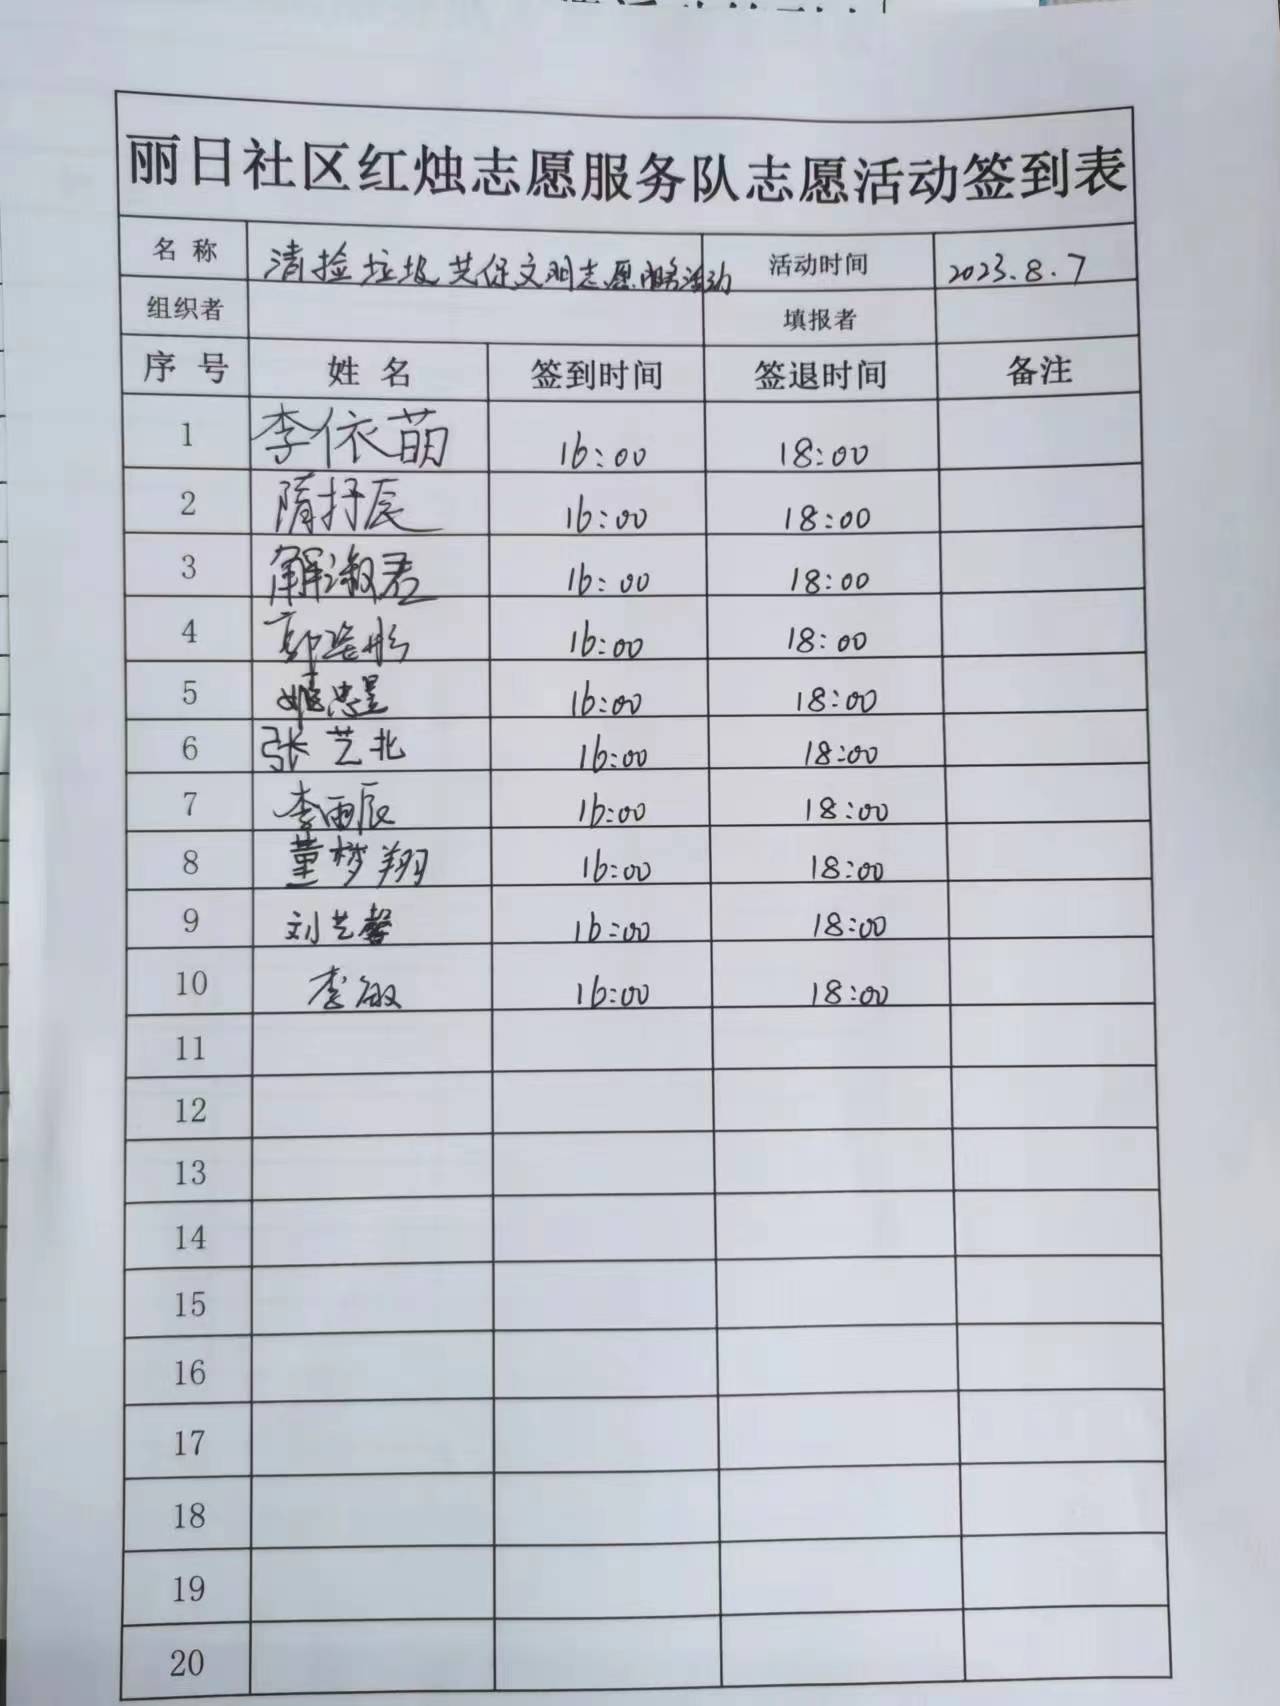 丽日社区红烛志愿服务队志愿活动签到表
名 称 清捡垃圾共保文明志愿服务活动 活动时间 2023.8.7
组织者 填报者
序 号 姓 名 签到时间 签退时间 备注
1 李依萌 16:00 18:00
2 隋抒辰 16:00 18:00
3 解淑君 16:00 18:00
4 16:00 18:00
5 16:00 18:00
6 张艺北 16:00 18:00
7 李雨辰 16:00 18:00
8 董梦翔 16:00 18:00
9 刘艺馨 16:00 18:00
10 李敏 16:00 18:00
11
12
13
14
15
16
17
18
19
20